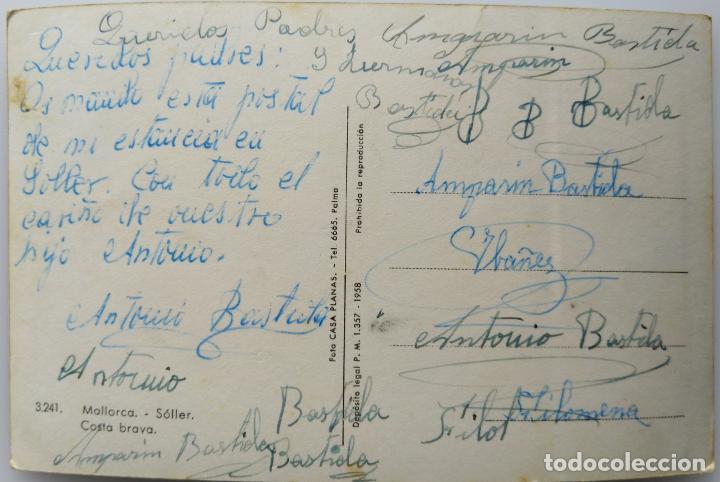 Queridos Padres
y hermanos
Queridos padres:
Os mando esta postal
de mi estancia en
Sóller. Con todo el
cariño de vuestro
hijo Antonio.
Antonio Bastida
Antonio
3.241. Mallorca. - Sóller.
Costa brava.
Bastida
Amparin Bastida
Bastida
Foto CASA PLANAS. - Tel 6665. Palma
Depósito legal P. M. 1.357 - 1958
Prohibida la reproducción
Amparin Bastida
Amparin
Bastida
B B Bastida
Amparin Bastida
Ybañez
Antonio Bastida
Filomena
Filot
todocoleccion
todocoleccion.net